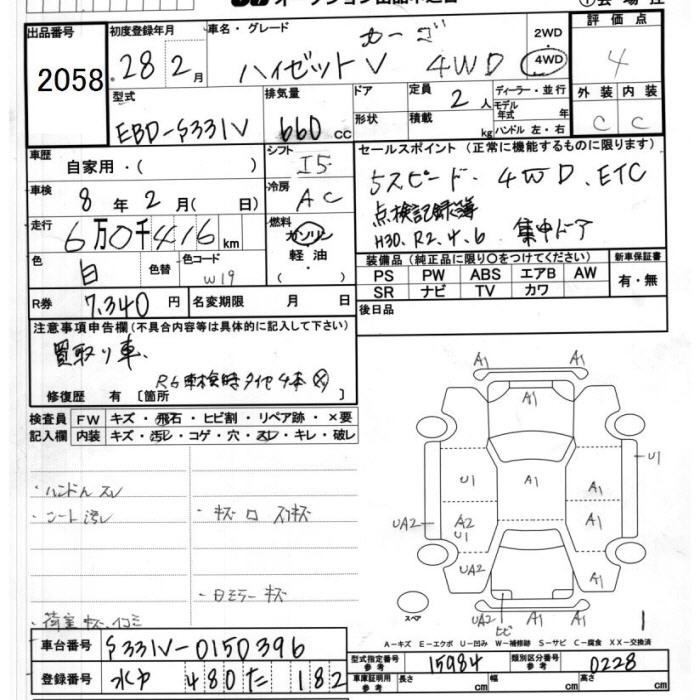 出品番号
2058
初度登録年月
28 2月
車名・グレード
カーゴ
ハイゼットV 4WD
2WD
4WD
評価点
4
外装 内装
C C
型式
EBD-S331V
排気量
660cc
ドア
形状
定員
2人
積載
kg
ディーラー・並行
モデル
年式 年
ハンドル 左・右
車歴
自家用・( )
シフト
I5
セールスポイント(正常に機能するものに限ります)
5スピード、4WD、ETC
点検記録簿
H30、R2.4.6 集中ドア
車検
8年2月( 日)
冷房
AC
走行
6万0千416km
燃料
ガソリン
軽油
・( )
色
白
色替
色コード
W19
装備品(純正品に限り○をつけてください)
PS PW ABS エアB AW
SR ナビ TV カワ
新車保証書
有・無
R券
7,340円
名変期限 月 日
後日品
注意事項申告欄(不具合内容等は具体的に記入して下さい)
買取り車、
R6車検時タイヤ4本
修復歴 有[箇所
検査員
記入欄
FW キズ・飛石・ヒビ割・リペア跡・×要
内装 キズ・汚レ・コゲ・穴・スレ・キレ・破レ
・ハンドルスレ
・シート汚レ
・キズ ロ スリキズ
・日ミラーキズ
・荷室キズ、凹ミ
A1
A1 A1
A1
U1
U1 A1 A1
UA2 A2 A1 A1
U1
UA2 A1
UA2 A1 A1
ヒビ
スペア
1
A-キズ E-エクボ U-凹み W-補修跡 S-サビ C-腐食 XX-交換済
車台番号
S331V-0150396
登録番号
水戸 480 た 182
型式指定番号
参考
15984
類別区分番号
参考
0228
車庫証明用
参考
長さ cm
幅 cm
高さ cm